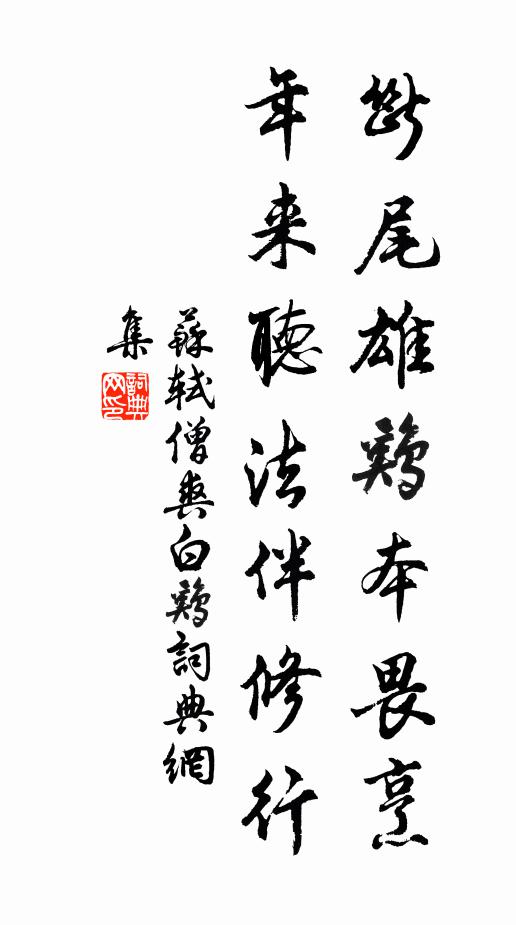 斷尾雄鷄本畏烹
年来聽法伴修行
蘇軾僧爽白鷄詞典網
集
詞典
网印